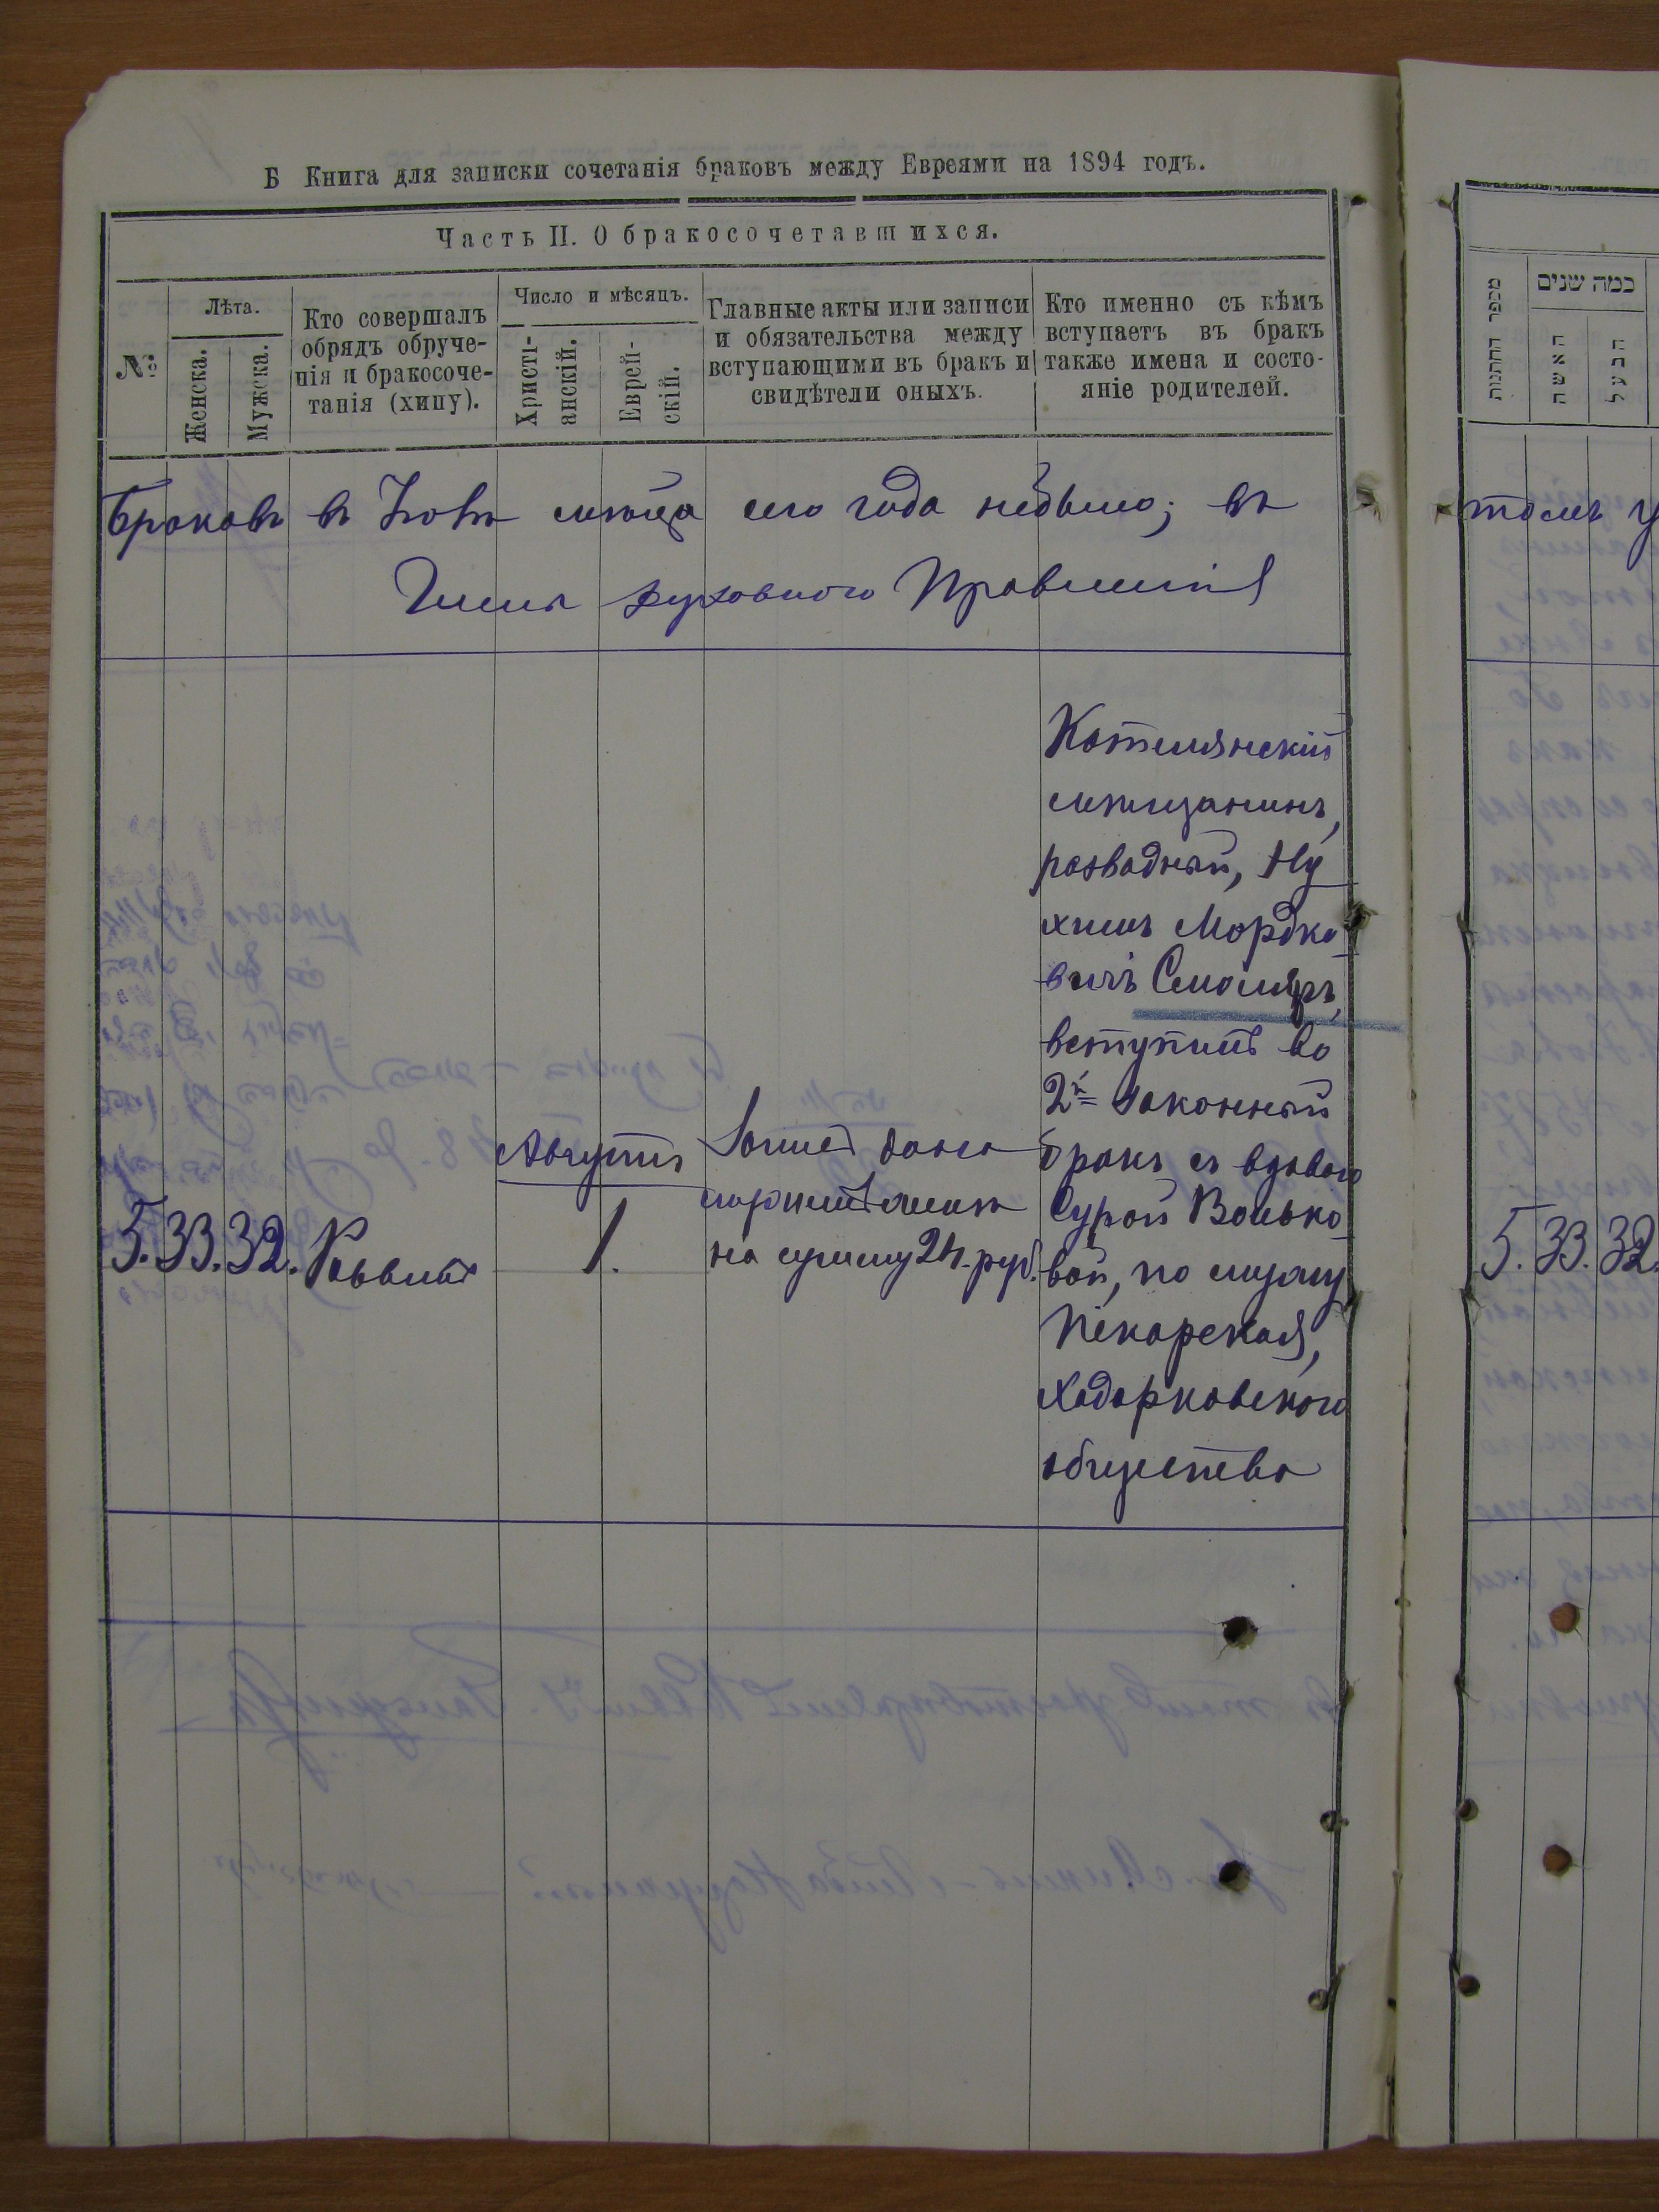 Б Книга для записки сочетанія браковъ между Евреями на 1894 годъ.
Часть II. О бракосочетавшихся.
№
Лѣта.
Женска.
Мужска.
Кто совершалъ
обрядъ обруче-
нія и бракосоче-
танія (хипу).
Число и мѣсяцъ.
Христі-
анскій.
Еврей-
скій.
Главные акты или записи
и обязательства между
вступающими въ бракъ и
свидѣтели оныхъ.
Кто именно съ кѣмъ
вступаетъ въ бракъ
также имена и состо-
яніе родителей.
Браковъ въ мѣсяца сего года небыло; въ
духовного Правленія
5. 33. 32. Раввинъ
Августъ
1.
дана
на сумму 24. руб.
мѣщанинъ,
разводный, Ну
химъ Мордко
вичъ Смоляръ,
вступилъ во
2й законный
бракъ съ вдовою
Сурой Волько
вой, по мужу
Пекарская,
Ходорковского
общества
מספר החתונות
כמה שנים
האשה
הבעל
томъ у
5. 33. 32.